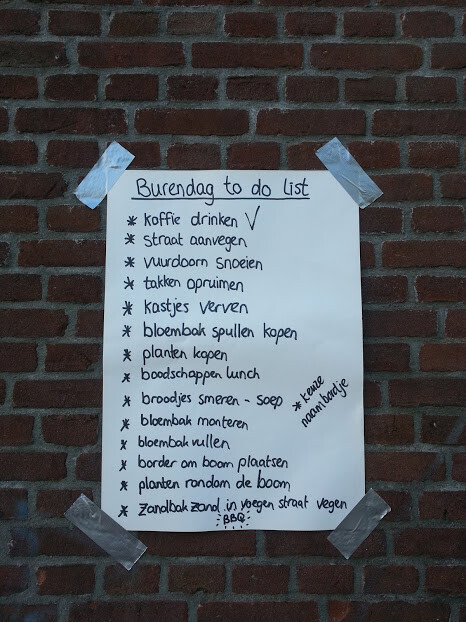 Burendag to do list
* koffie drinken V
* straat aanvegen
* vuurdoorn snoeien
* takken opruimen
* kastjes verven
* bloembak spullen kopen
* planten kopen
* boodschappen lunch
* broodjes smeren - soep
* keuze
naambordje
* bloembak monteren
* bloembak vullen
* border om boom plaatsen
* planten rondom de boom
* zandbakzand in voegen straat vegen
BBQ